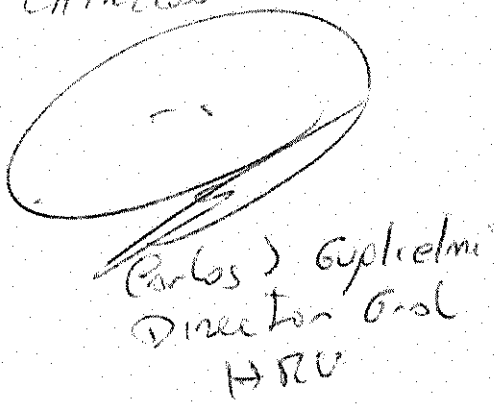 Carlos J Guglielmi
Director Gral
HRU